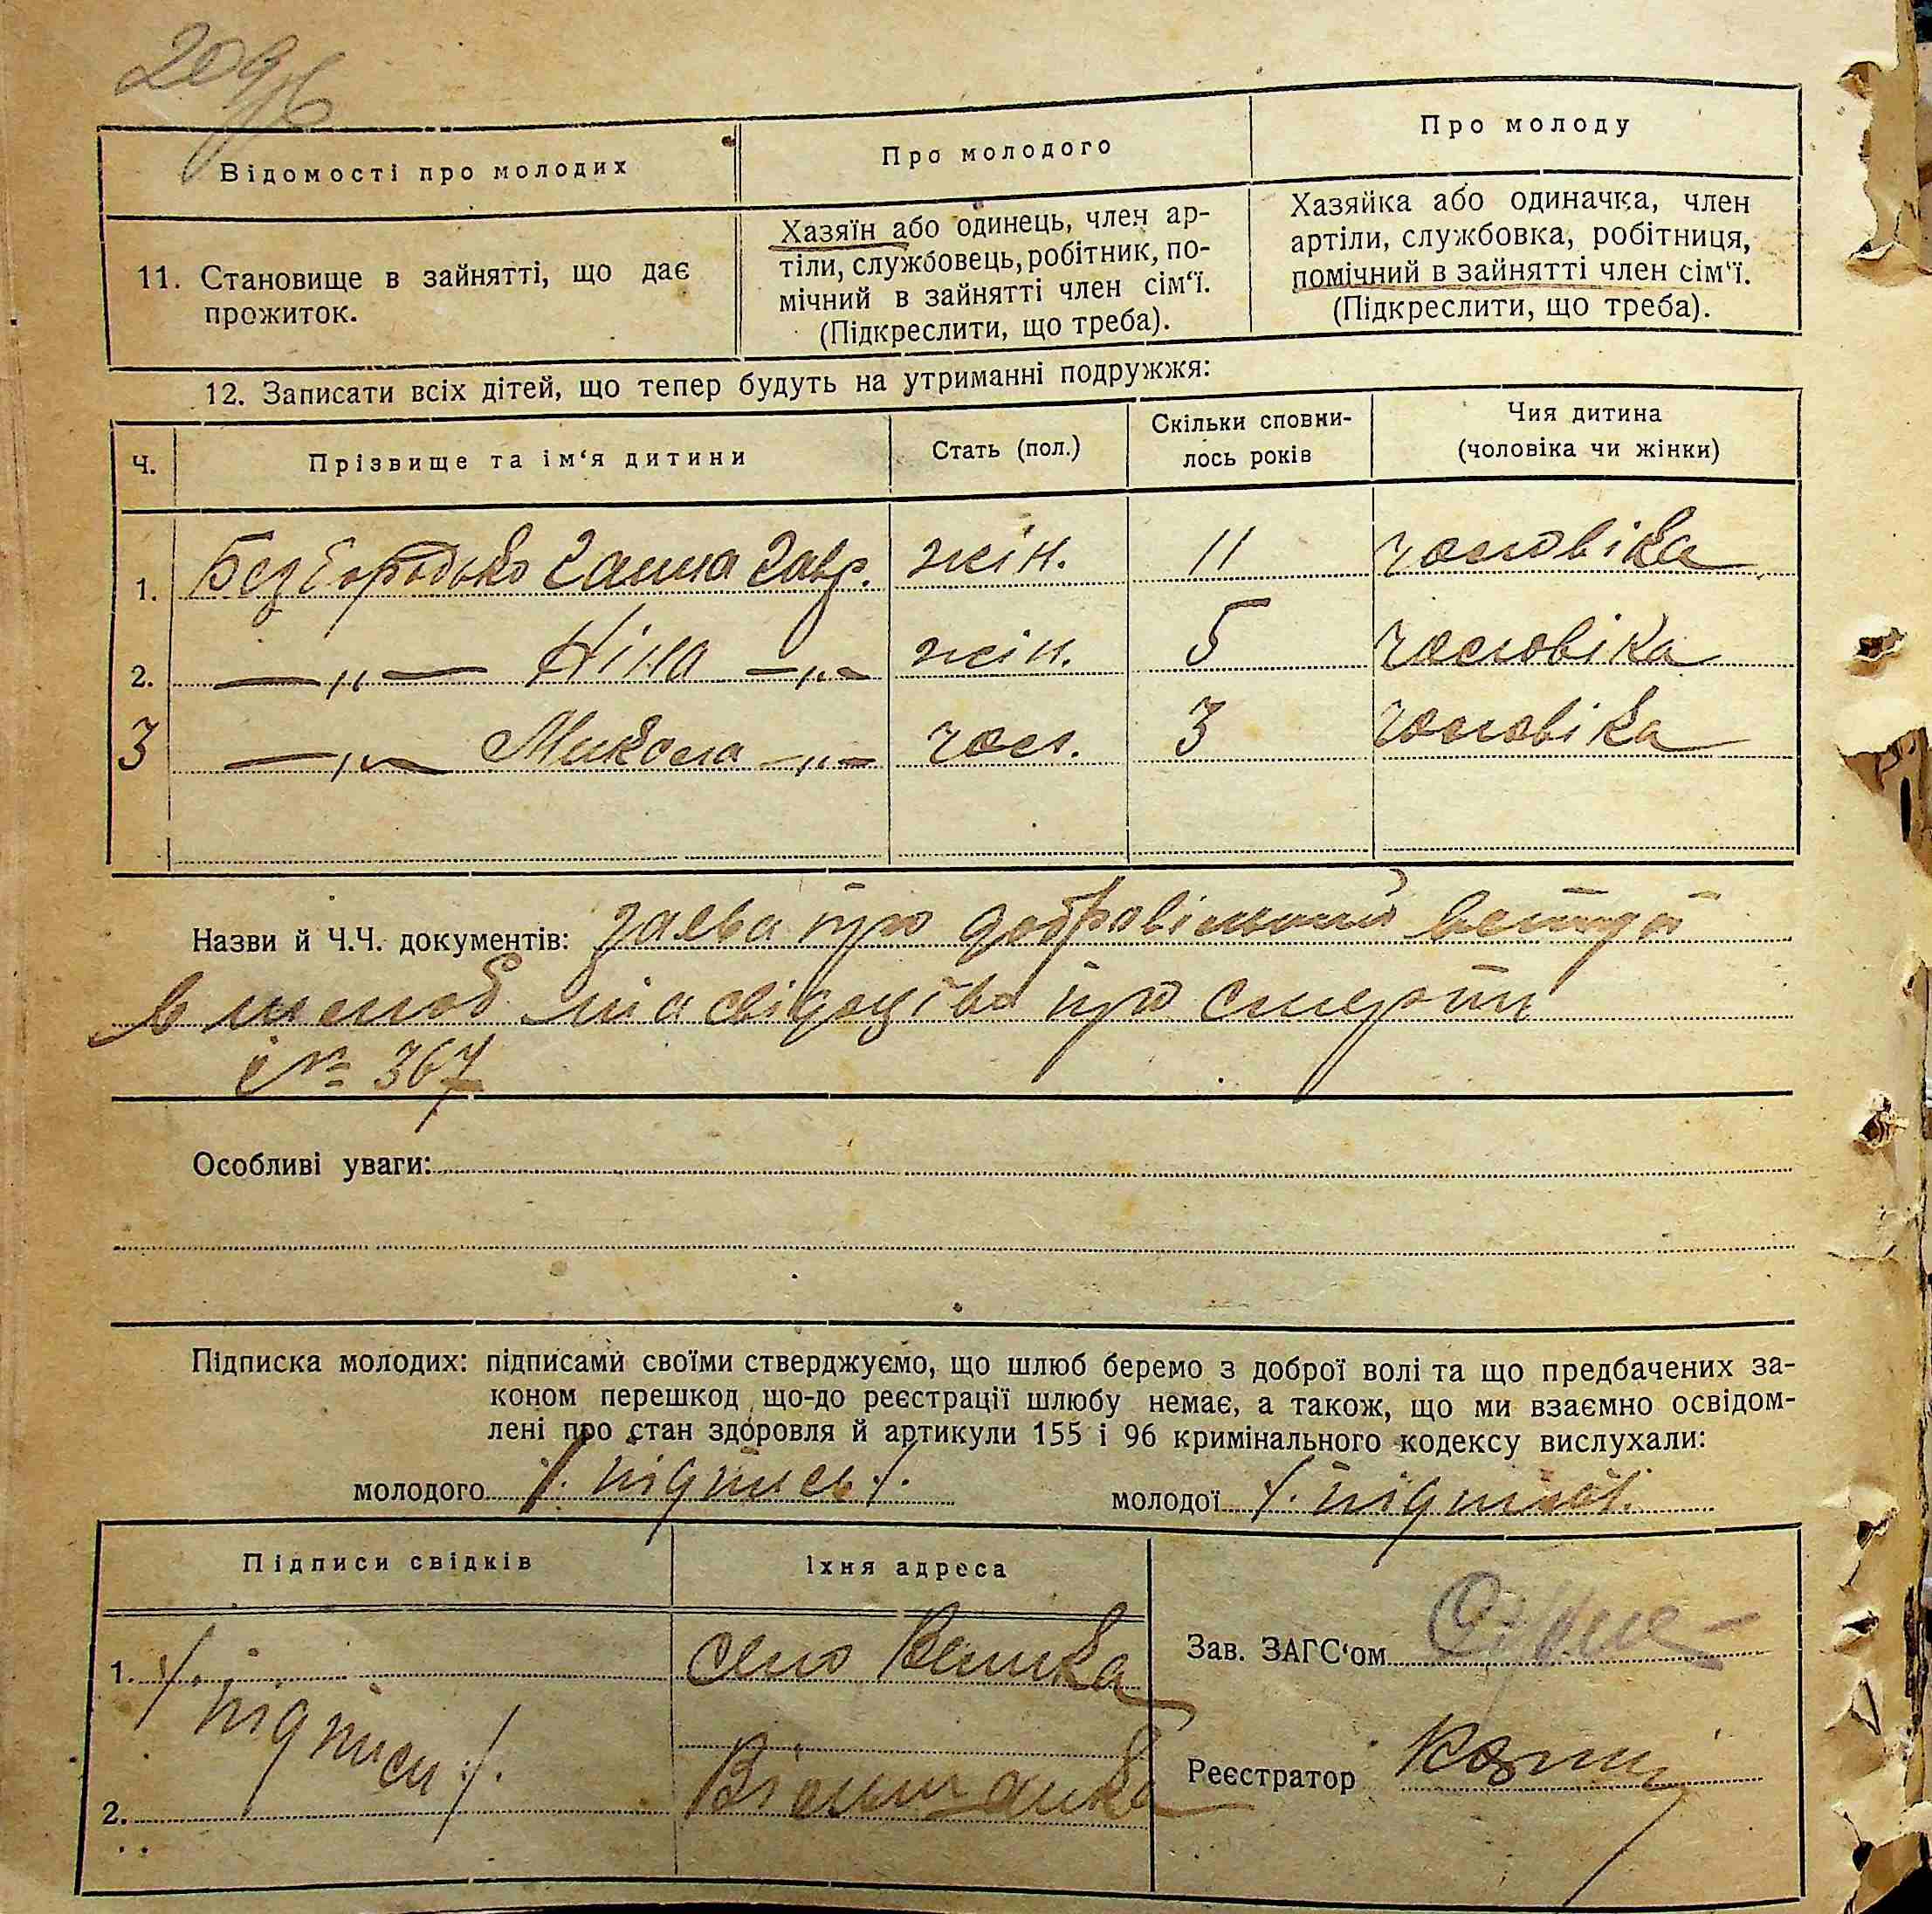 Відомості про молодих
Про молодого
Про молоду
11. Становище в зайнятті, що дає
прожиток.
Хазяїн або одинець, член ар-
тіли, службовець, робітник, по-
мічний в зайнятті член сім‘ї.
(Підкреслити, що треба).
Хазяйка або одиначка, член
артіли, службовка, робітниця,
помічний в зайнятті член сім‘ї.
(Підкреслити, що треба).
12. Записати всіх дітей, що тепер будуть на утриманні подружжя:
Ч.
Прізвище та ім‘я дитини
Стать (пол.)
Скільки сповни-
лось років
Чия дитина
(чоловіка чи жінки)
1. Безбородько Ганна Гавр. жін. 11 чоловіка
2. — „ — Ніна — „ — жін. 5 чоловіка
3 — „ — Микола — „ — чол. 3 чоловіка
Назви й Ч.Ч. документів: заява про добровільний вступ
в шлюб та свідоцтво про смерть
№ 367
Особливі уваги:
Підписка молодих: підписами своїми стверджуємо, що шлюб беремо з доброї волі та що предбачених за-
коном перешкод що-до реєстрації шлюбу немає, а також, що ми взаємно освідом-
лені про стан здоровля й артикули 155 і 96 кримінального кодексу вислухали:
молодого /. підпись /.
молодої /. підпись /.
Підписи свідків
Їхня адреса
1. /. підписи /.
село
Зав. ЗАГС‘ом
2.
Вільшанка
Реєстратор